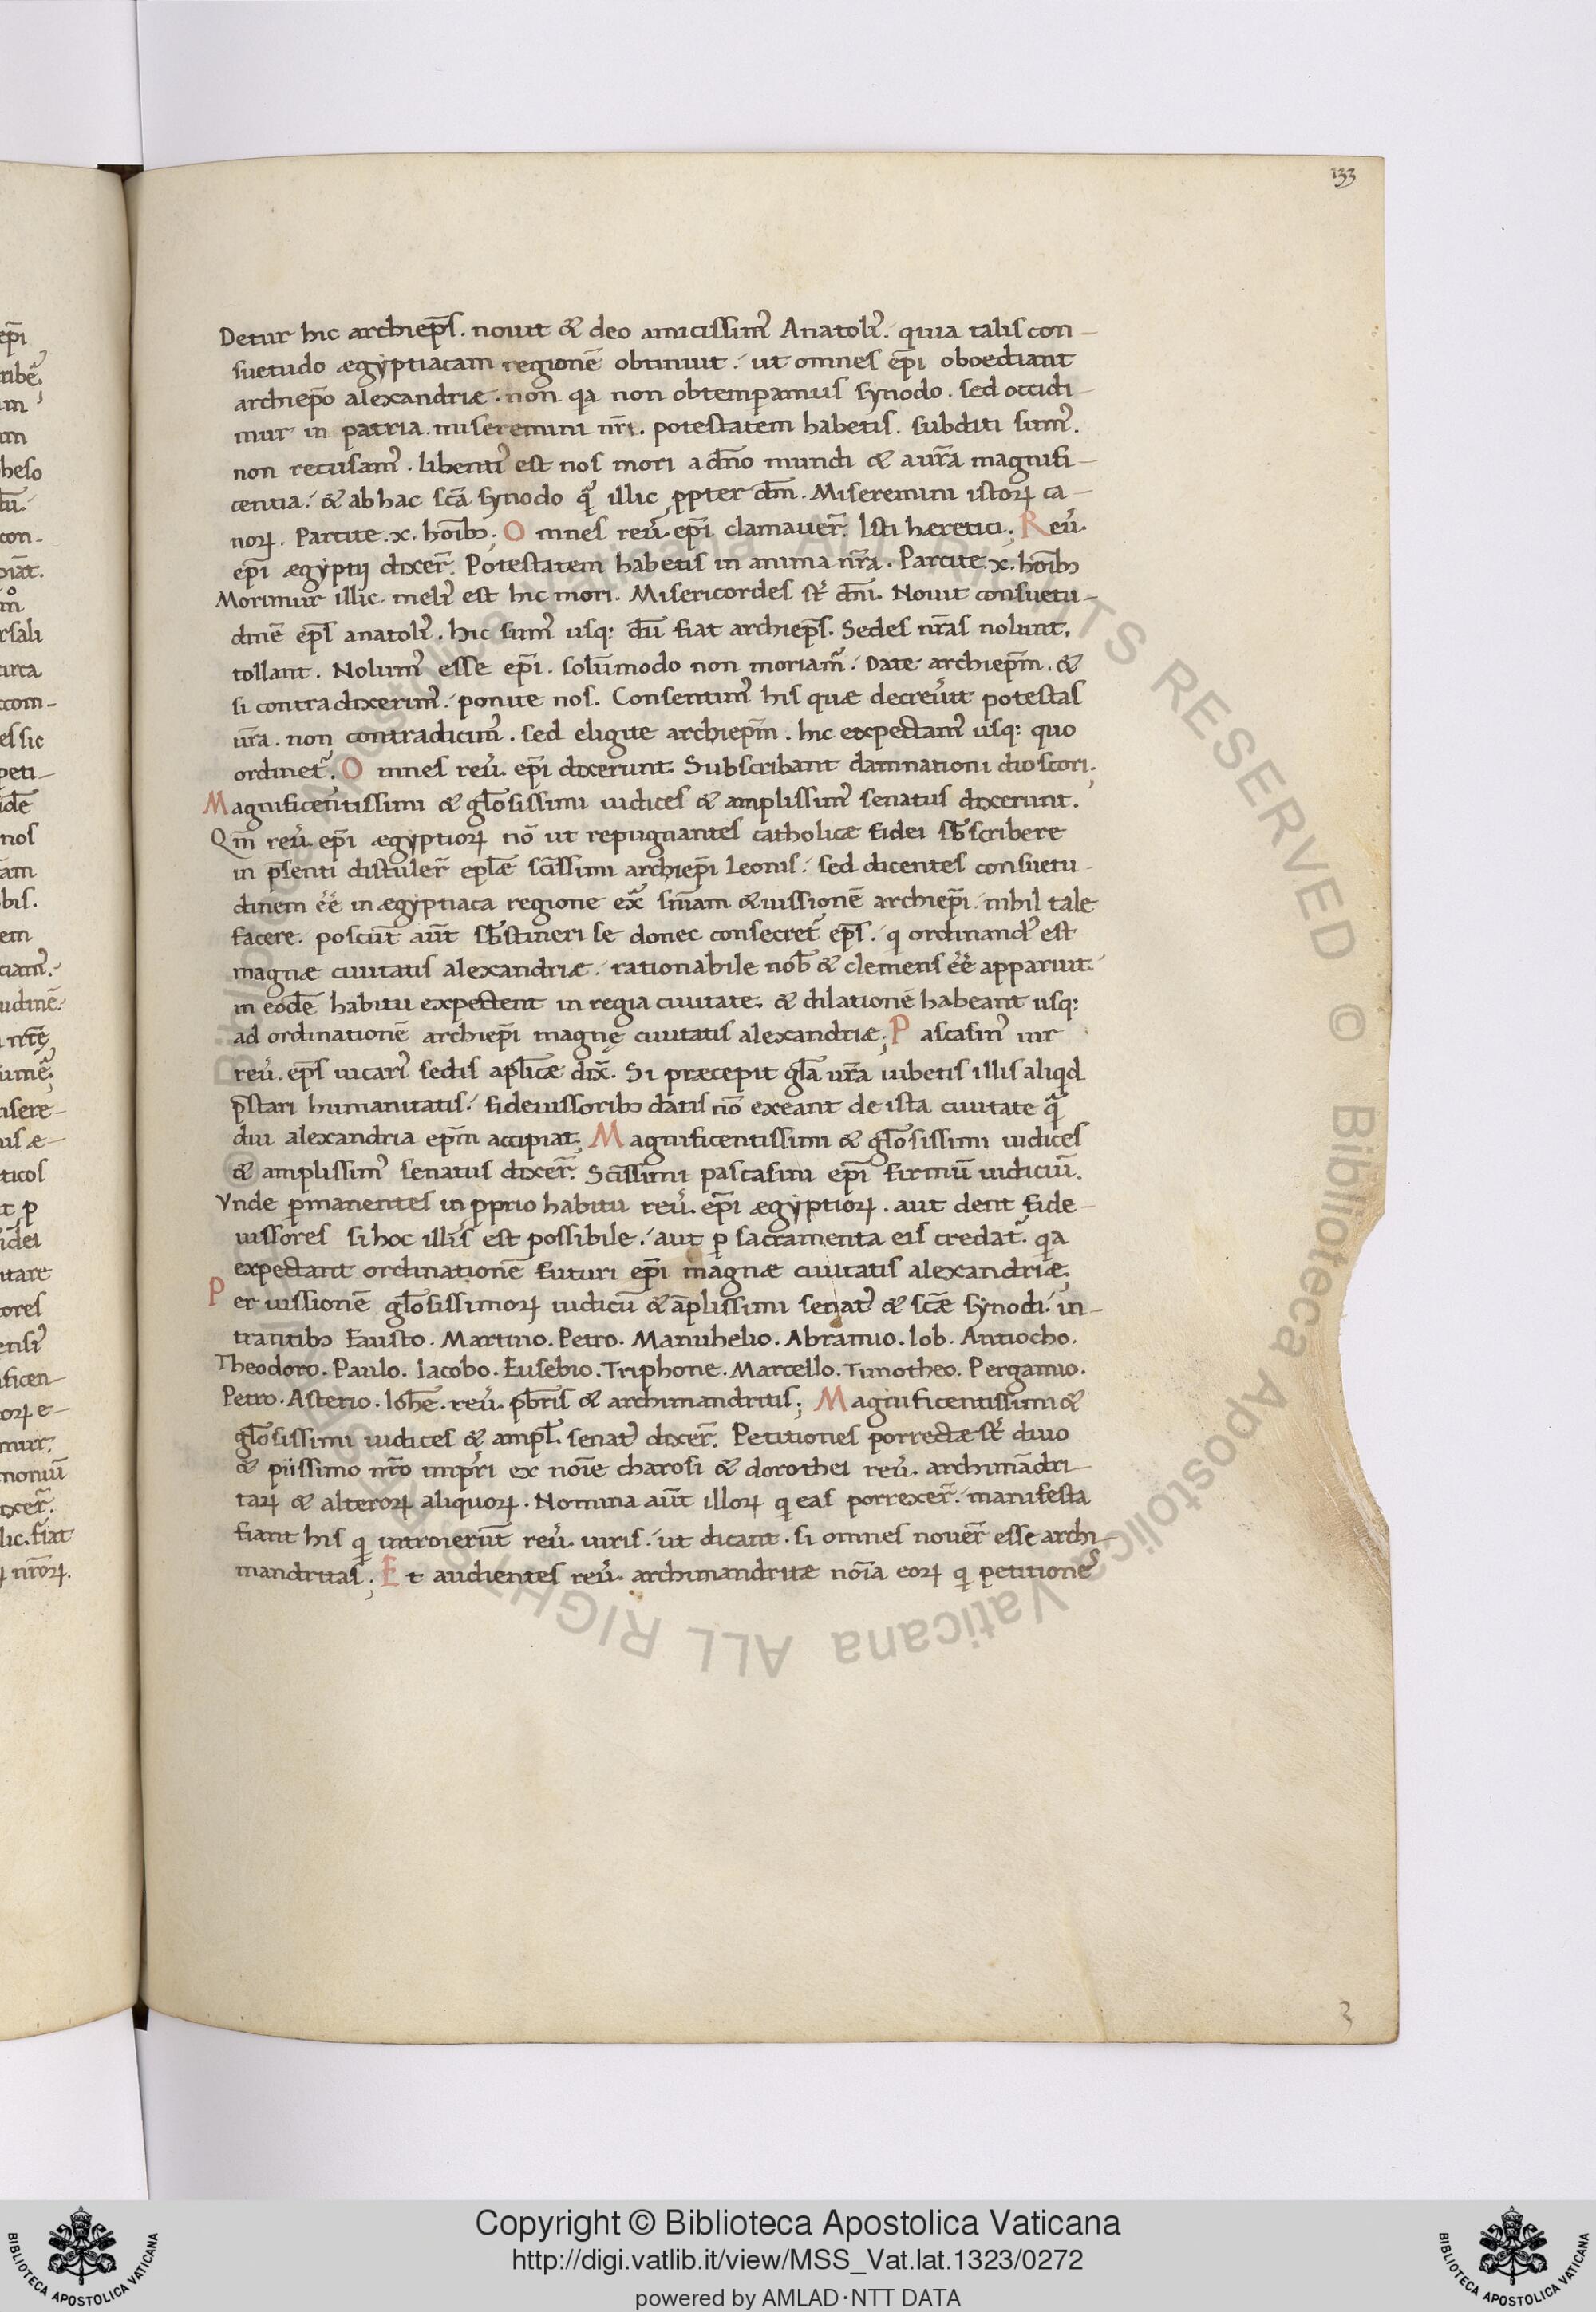 133
Detur hic archiep̄s. nouit & deo amicissim᾽ Anatoli᾽. quia talis con-
suetudo ægyptiacam regionē obtinuit. ut omnes ep̄i oboediant
archiep̄o alexandriæ. non qa non obtemperamus synodo. sed occidi-
mur in patria. miseremini nr̄i. potestatem habetis. subditi sum᾽.
non recusam᾽. libenti᾽ est nos mori a dn̄o mundi & a ur̄a magnifi-
centia. & ab hac sc̄a synodo q̄ illic ꝓpter dm̄. Miseremini istoꝝ ca-
noꝝ. Parcite .x. hoīb;. Omnes reu᾽. ep̄i clamauer̄. Isti hæretici; Reu᾽.
ep̄i ægyptii dixer̄. Potestatem habetis in anima nr̄a. Parcite .x. hoīb;
Morimur illic. meli᾽ est hic mori. Misericordes st᾽ dn̄i. Nouit consuetu-
dinē ep̄s anatoli᾽. hic sum᾽ usq: dū fiat archiep̄s. Sedes nr̄as nolunt,
tollant. Nolum᾽ esse ep̄i. solūmodo non moriam᾽. Date archiep̄m. &
si contradixerim᾽. punite nos. Consentim᾽ his quæ decreu᾽it potestas
ur̄a. non contradicim᾽. sed eligite archiep̄m. hic expectam᾽ usq: quo
ordinet᾽. Omnes reu᾽. ep̄i dixerunt. Subscribant damnationi dioscori;
Magnificentissimi & gl̄osissimi iudices & amplissim᾽ senatus dixerunt.
Qm̄ reu᾽. ep̄i ægyptioꝝ nō ut repugnantes catholicæ fidei sb̄scribere
in p̄senti distuler̄ epl̄æ sc̄issimi archiep̄i Leonis. sed dicentes consuetu-
dinem eē in ægyptiaca regione ex̄ sn̄iam & iussionē archiep̄i. nihil tale
facere. poscūt aūt sb̄stineri se donec consecret᾽ ep̄s. qi ordinand᾽ est
magnæ ciuitatis alexandriæ. rationabile nob̄ & clemens eē apparuit.
in eodē habitu expectent in regia ciuitate. & dilationē habeant usq:
ad ordinationē archiep̄i magnę ciuitatis alexandriæ; Pascasin᾽ uir
reu᾽. ep̄s uicari᾽ sedis apl̄icæ dix̄. Si præcepit gl̄a ur̄a iubetis illis aliqd
p̄stari humanitatis. fideiussorib; datis nō exeant de ista ciuitate q̄
diu alexandria ep̄m accipiat; Magnificentissimi & gl̄osissimi iudices
& amplissim᾽ senatus dixer̄. Sc̄issimi pascasini ep̄i firmū iudiciū.
Vnde ꝑmanentes in ꝓprio habitu reu᾽. ep̄i ægyptioꝝ. aut dent fide-
iussores si hoc illis est possibile. aut ꝑ sacramenta eis credat᾽. qa
expectant ordinationē futuri ep̄i magnæ ciuitatis alexandriæ;
Per iussionē gl̄osissimoꝝ iudicū & āplissimi senat᾽ & sc̄æ synodi. in-
trantib; Fausto. Martino. Petro. Manuhelio. Abramio. Iob. Antiocho.
Theodoro. Paulo. Iacobo. Eusebio. Triphone. Marcello. Timotheo. Pergamio.
Petro. Asterio. Ioh̄e. reu᾽. pb̄ris & archimandritis; Magnificentissimi &
gl̄osissimi iudices & ampl̄. senat᾽ dixer̄. Petitiones porrectæ st᾽ diuo
& piissimo nr̄o imp̄ri ex noīe charosi & dorothei reu᾽. archimādri-
taꝝ & alteroꝝ aliquoꝝ. Nomina aūt illoꝝ qi eas porrexer̄. manifesta
fiant his qi introierūt reu᾽. uiris. ut dicant. si omnes nouer̄ esse archi-
mandritas; Et audientes reu᾽. archimandritæ noīa eoꝝ qi petitiones
3
Copyright © Biblioteca Apostolica Vaticana
http://digi.vatlib.it/view/MSS_Vat.lat.1323/0272
powered by AMLAD·NTT DATA
BIBLIOTECA APOSTOLICA VATICANA
BIBLIOTECA APOSTOLICA VATICANA
© Biblioteca Apostolica Vaticana ALL RIGHTS RESERVED © Biblioteca Apostolica Vaticana ALL RIGHTS RESERVED